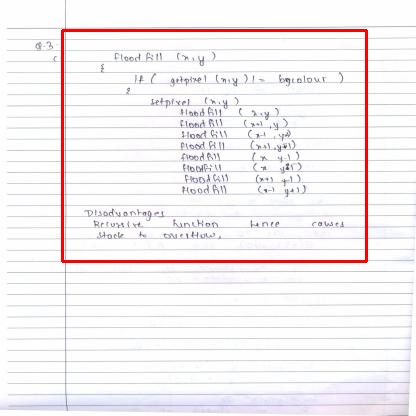 Q.3
(
floodfill (x,y)
{
if ( getpixel (x,y) != bgcolour )
{
setpixel (x,y)
floodfill (x,y)
floodfill (x+1, y)
floodfill (x-1,
floodfill (x+1,
floodfill (x y-1)
floodfill (x
floodfill (x+1 y-1)
floodfill (x-1 y+1)
Disadvantages
Recursive function hence causes
stack to overflow.